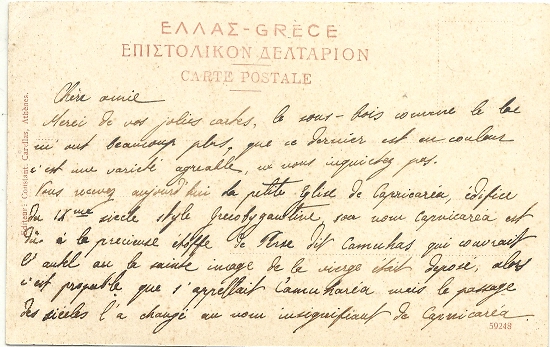 ΕΛΛΑΣ-GRÈCE
ΕΠΙΣΤΟΛΙΚΟΝ ΔΕΛΤΑΡΙΟΝ
CARTE POSTALE
Chère amie
Merci de vos jolies cartes, le sous-bois comme le lac
m'ont beaucoup plus, que ce dernier est en couleur
c'est une varieté agreable, ne vous inquietez pas.
Vous recevez aujourd'hui la petite Eglise de Capnicaréa, édifice
du siècle style son nom Capnicaréa est
dû à la precieuse étoffe de Perse dit Camuhas qui couvrait
l'autel ou la sainte image de la vierge était deposé, alors
c'est probable que s'appellait Camuharéa mais le passage
des siècles l'a changé au nom insignifiant de Capnicaréa
Editeur: Constant. Carullas, Athènes.
59248